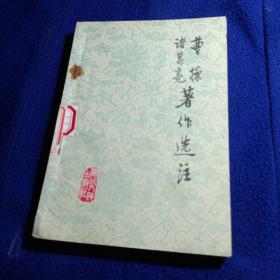 曹操
诸葛亮
著作选注